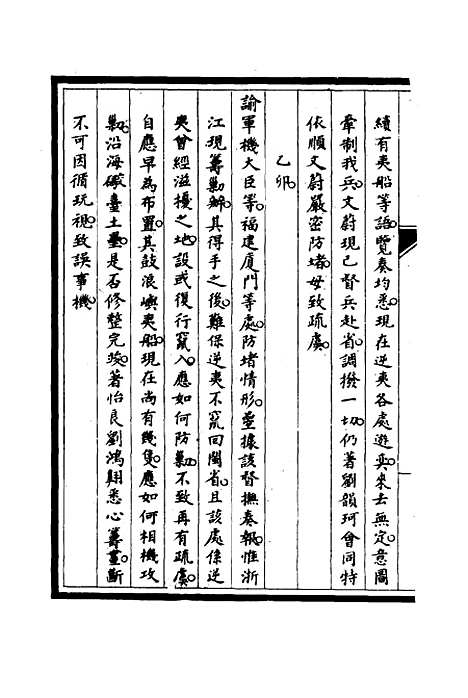 續有夷船等語。覽奏均悉。現在逆夷各處遊奕。來去無定。意圖
牽制我兵。文蔚現已督兵赴省。調撥一切。仍著劉韻珂會同特
依順文蔚嚴密防堵。毋致疏虞。
乙卯。
諭軍機大臣等。福建廈門等處。防堵情形。疊據該督撫奏報。惟浙
江現籌勦辦。其得手之後。難保逆夷不竄回閩省。且該處係逆
夷曾經滋擾之地。設或復行竄入。應如何防勦。不致再有疏虞。
自應早為布置。其鼓浪嶼夷船。現在尚有幾隻。應如何相機攻
勦。沿海礮臺土壘。是否修整完竣。著怡良劉鴻翱悉心籌畫。斷
不可因循玩視。致誤事機。